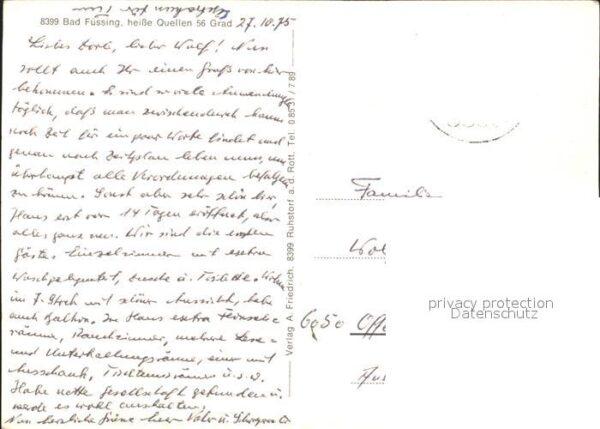 8399 Bad Füssing, heiße Quellen 56 Grad 27.10.75
Liebes Dorle, lieber Wolf! Nun
sollt auch Ihr einen Gruß von hier
bekommen. Es sind so viele Anwendungen
täglich, daß man zwischendurch kaum
noch Zeit für ein paar Worte findet und
genau nach Zeitplan leben muss, um
überhaupt alle Verordnungen befolgen
zu können. Sonst aber sehr schön hier,
Haus erst vor 14 Tagen eröffnet, also
alles ganz neu. Wir sind die ersten
Gäste. Einzelzimmer mit extra
Waschgelegenheit, Dusche u. Toilette. Wohne
im 7. Stock mit schöner Aussicht, habe
auch Balkon. Im Haus extra Fernseh-
räume, Rauchzimmer, mehrere Lese-
und Unterhaltungsräume, einer mit
Ausschank, Tischtennisräume u.s.w.
Habe nette Gesellschaft gefunden u.
werde es wohl aushalten.
Nun herzliche Grüße Euer Vater u.
Verlag A. Friedrich, 8399 Ruhstorf a. d. Rott, Tel. 0 85 31 / 7 89
Familie
Wol
6050 Offe
privacy protection
Datenschutz